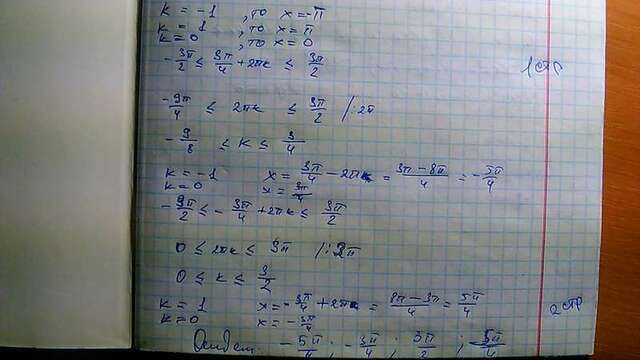 k = -1 , то x = -π
k = 1 , то x = π
k = 0 , то x = 0
-3π/2 ≤ 3π/4 + 2πk ≤ 3π/2
1 стр
-9π/4 ≤ 2πk ≤ 3π/2 /:2π
-9/8 ≤ k ≤ 3/4
k = -1 x = 3π/4 - 2πk = (3π-8π)/4 = -5π/4
k = 0 x = 3π/4
-9π/2 ≤ -3π/4 + 2πk ≤ 3π/2
0 ≤ 2πk ≤ 3π /:2π
0 ≤ k ≤ 3/2
k = 1 x = -3π/4 + 2πk = (8π-3π)/4 = 5π/4
2 стр
k = 0 x = -3π/4
-5π/4 ; -3π/4 ; 3π/2 ; 5π/4